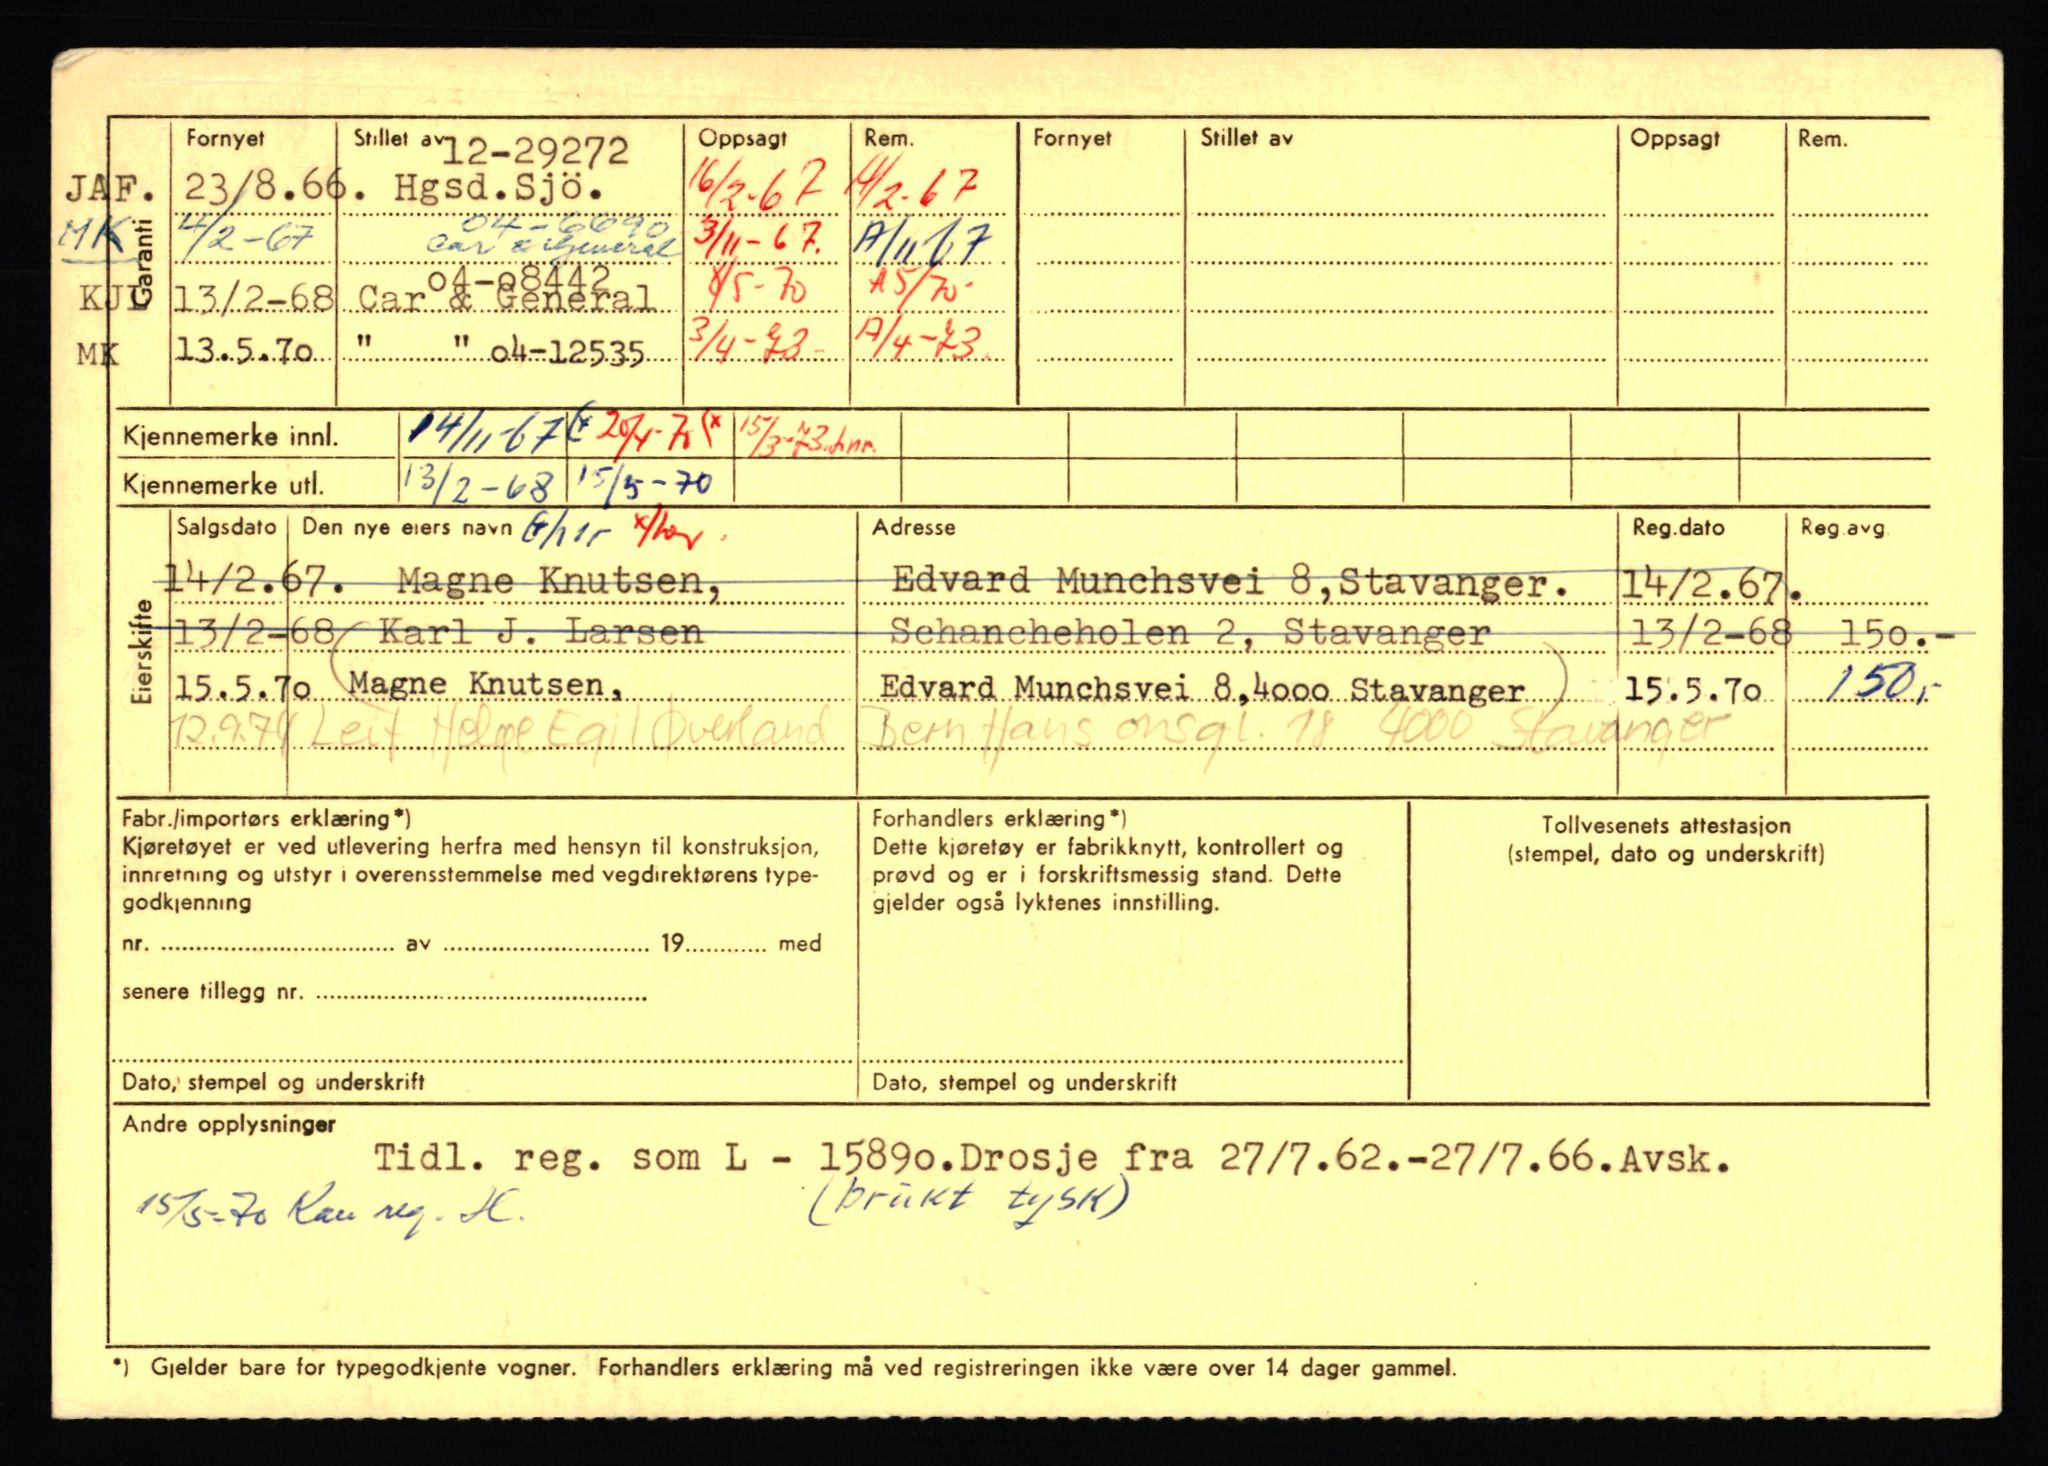 Fornyet Stillet av 12-29272 Oppsagt Rem. Fornyet Stillet av Oppsagt Rem.
JAF. 23/8.66. Hgsd.Sjö. 16/2-67 14/2-67
MK 4/2-67 04-6690 Car & General 3/11-67. A/11 67
Garanti
KJL 13/2-68 o4-o8442 Car & General /5-70 A5/70
MK 13.5.7o " " o4-12535 3/4-73 A/4-73.
Kjennemerke innl. 14/11-67 20/4-70 15/3-73
Kjennemerke utl. 13/2-68 15/5-70
Eierskifte
Salgsdato Den nye eiers navn Adresse Reg.dato Reg.avg.
14/2.67. Magne Knutsen, Edvard Munchsvei 8,Stavanger. 14/2.67.
13/2-68 Karl J. Larsen Schancheholen 2, Stavanger 13/2-68 15o.-
15.5.7o Magne Knutsen, Edvard Munchsvei 8,4ooo Stavanger 15.5.7o 150,-
12.9.74 Leif Helge Egil Øverland Bern Hans onsgt. 18 4000 Stavanger
Fabr./importørs erklæring*)
Kjøretøyet er ved utlevering herfra med hensyn til konstruksjon,
innretning og utstyr i overensstemmelse med vegdirektørens type-
godkjenning
nr. av 19 med
senere tillegg nr.
Dato, stempel og underskrift
Forhandlers erklæring*)
Dette kjøretøy er fabrikknytt, kontrollert og
prøvd og er i forskriftsmessig stand. Dette
gjelder også lyktenes innstilling.
Dato, stempel og underskrift
Tollvesenets attestasjon
(stempel, dato og underskrift)
Andre opplysninger
Tidl. reg. som L - 1589o.Drosje fra 27/7.62.-27/7.66.Avsk.
(brukt tysk)
15/5-70 Kan reg. H.
*) Gjelder bare for typegodkjente vogner. Forhandlers erklæring må ved registreringen ikke være over 14 dager gammel.